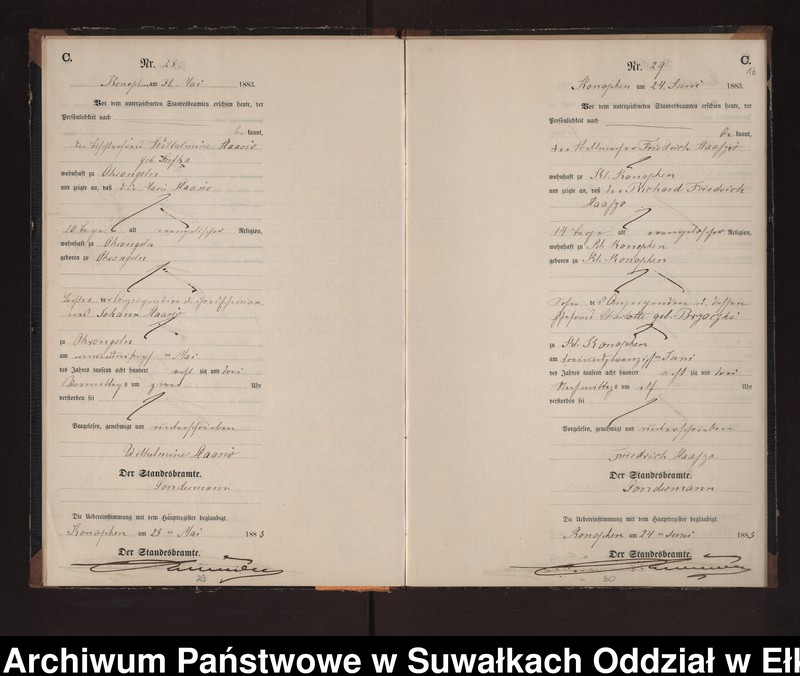 C.
Nr. 28
Konopken am 31. Mai 1883.
Vor dem unterzeichneten Standesbeamten erschien heute, der
Persönlichkeit nach
be kannt,
Wilhelmine Haasio
geb.
wohnhaft zu Okrongeln
und zeigte an, daß die Marie Haasio
10 Tage alt evangelischer Religion,
wohnhaft zu Okrongeln
geboren zu Okrongeln
Tochter der Anzeigenden
Johann Haasio
zu Okrongeln
am ten Mai
des Jahres tausend acht hundert acht zig und drei
Vormittags um Uhr
verstorben sei
Vorgelesen, genehmigt und unterschrieben
Wilhelmine Haasio
Der Standesbeamte.
Sondermann
Die Uebereinstimmung mit dem Hauptregister beglaubigt.
Konopken am ten Mai 1883
Der Standesbeamte.
29
C.
Nr. 29
16
Konopken am 24. Juni 1883.
Vor dem unterzeichneten Standesbeamten erschien heute, der
Persönlichkeit nach
be kannt,
der Friedrich Haaszio
wohnhaft zu Kl. Konopken
und zeigte an, daß der Richard Friedrich
Haaszo
14 Tage alt evangelischer Religion,
wohnhaft zu Kl. Konopken
geboren zu Kl. Konopken
Sohn des Anzeigenden u. dessen
Ehefrau Charlotte geb.
zu Kl. Konopken
am dreiundzwanzigsten Juni
des Jahres tausend acht hundert acht zig und drei
Nachmittags um elf Uhr
verstorben sei
Vorgelesen, genehmigt und unterschrieben
Friedrich Haaszo
Der Standesbeamte.
Sondermann
Die Uebereinstimmung mit dem Hauptregister beglaubigt.
Konopken am 24 ten Juni 1883
Der Standesbeamte.
30
Archiwum Państwowe w Suwałkach Oddział w Eł